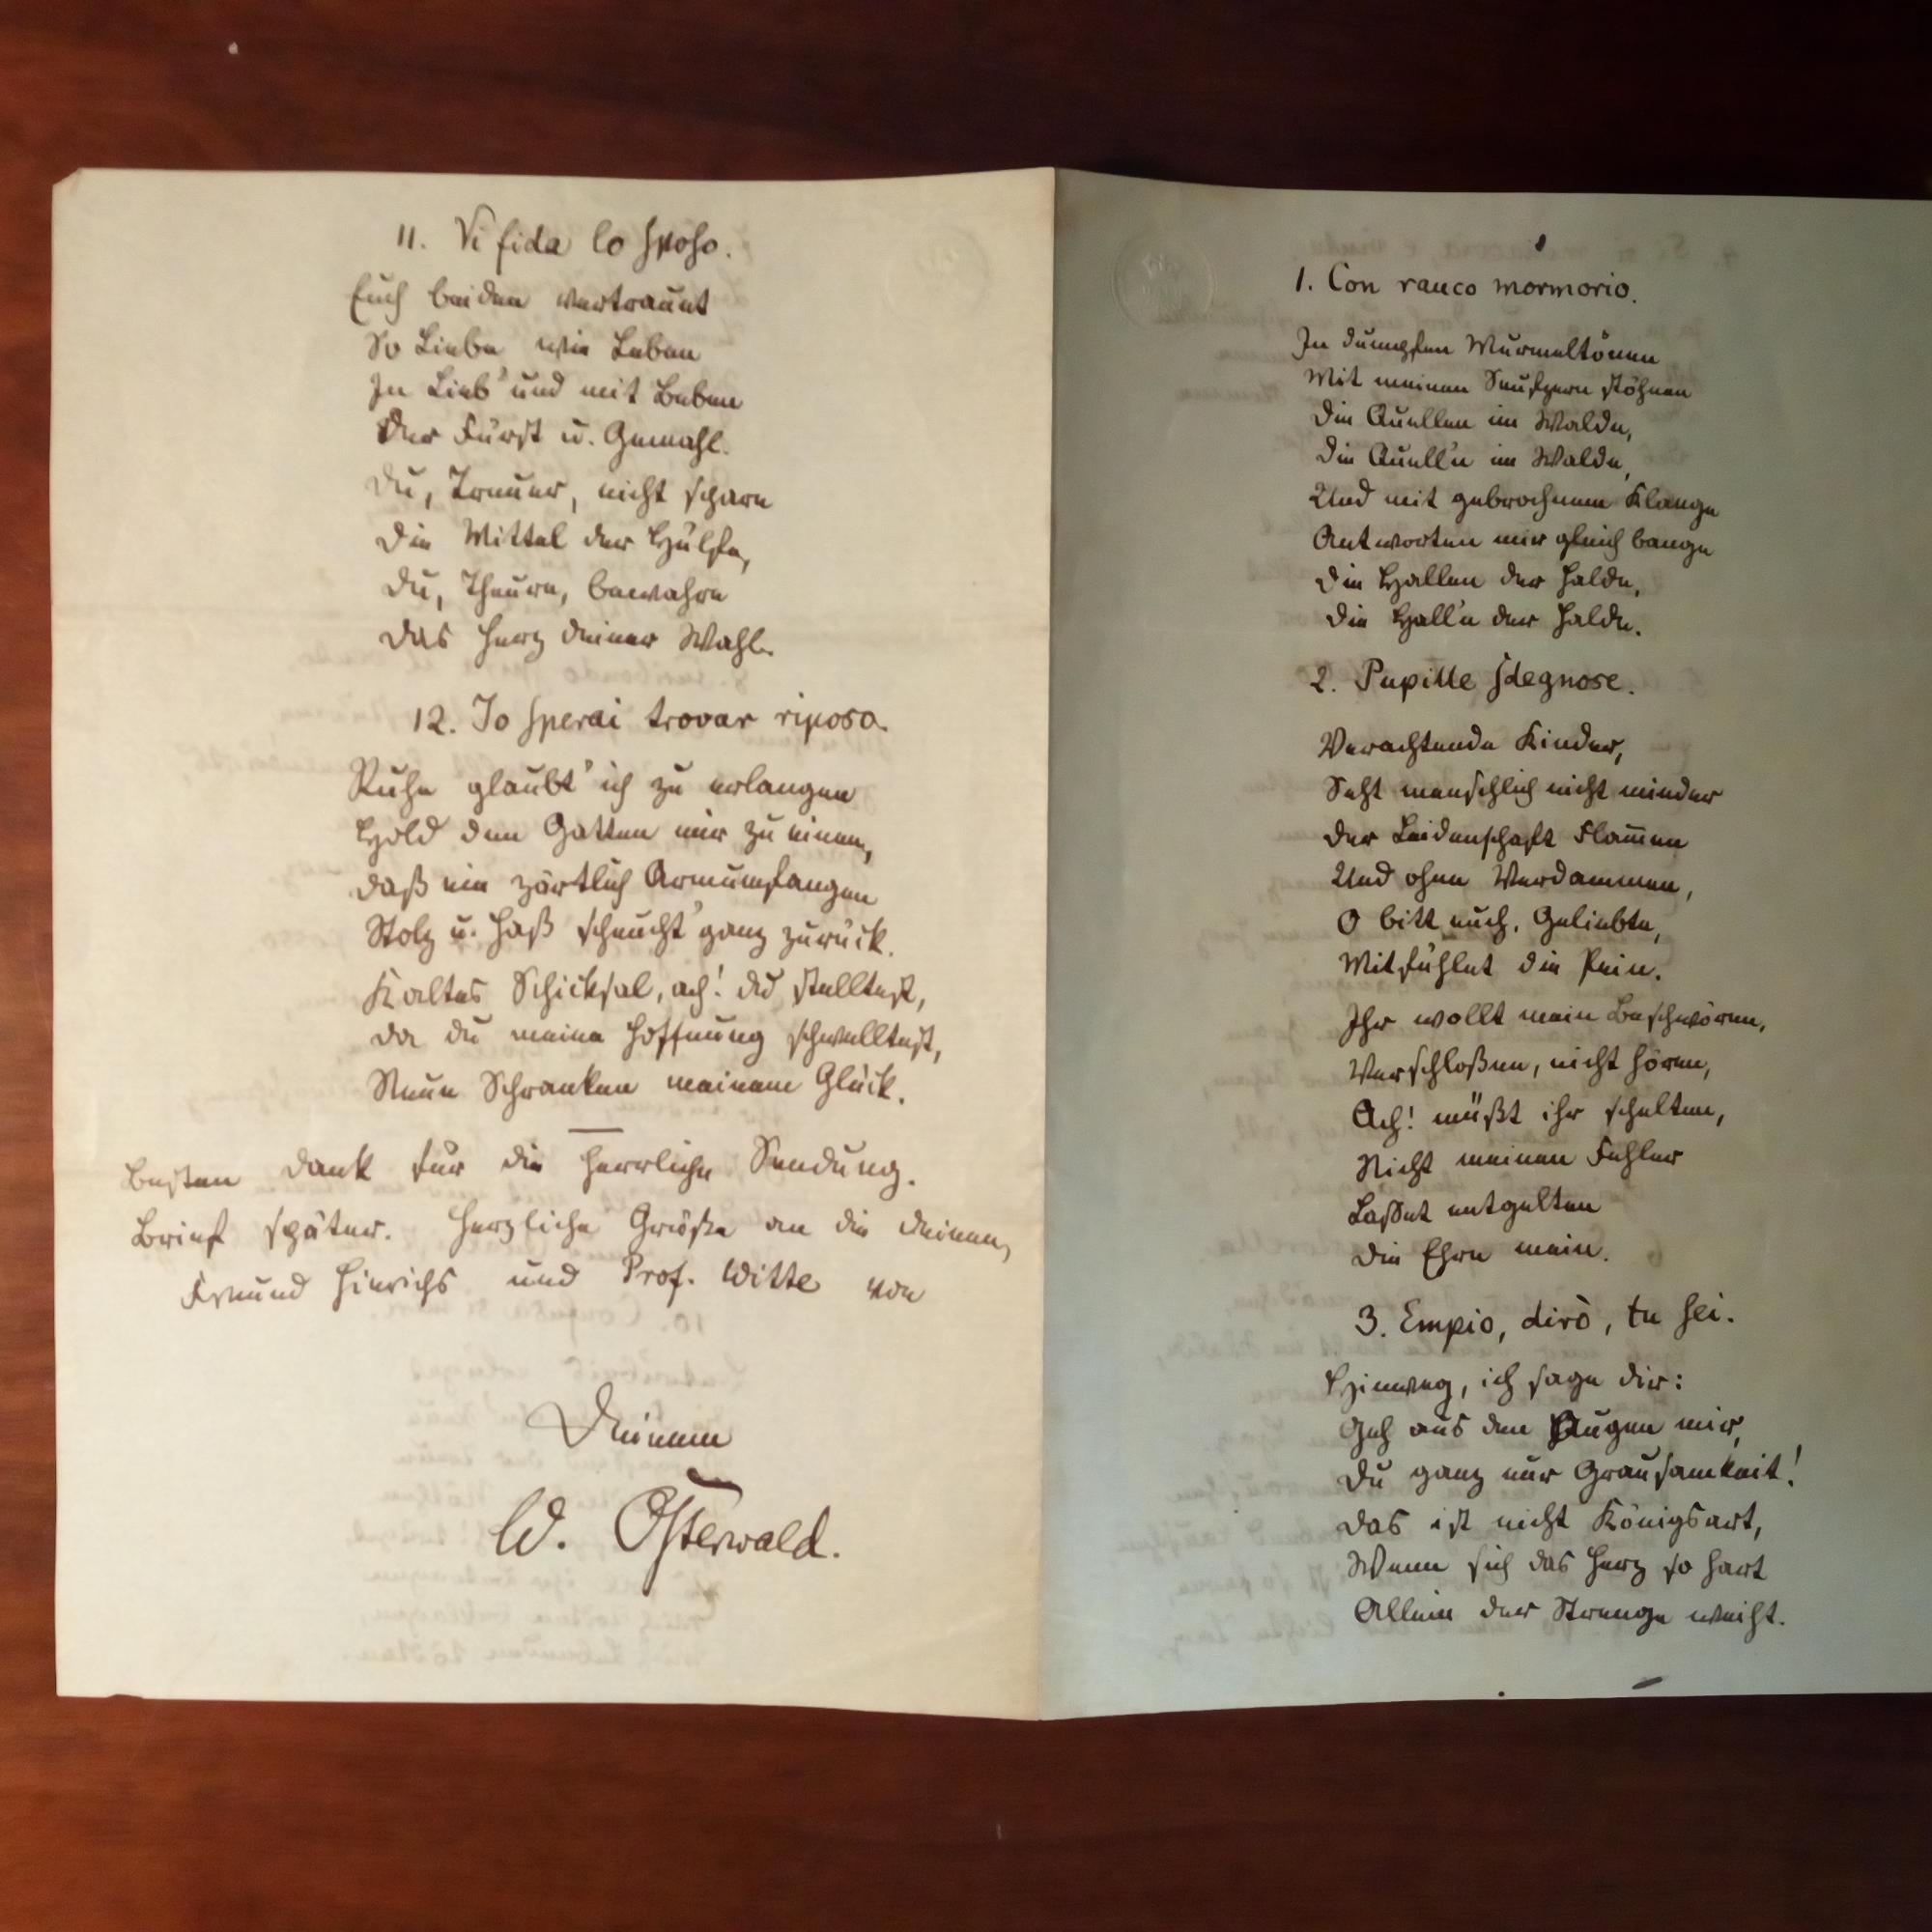 11. Vi fida lo sposo.
Euch beiden vertraut
So Liebe wie Leben
In Lieb' und mit Beben
Der Fürst u. Gemahl.
Du, Treuer, nicht spare
Die Mittel der Hülfe,
Du, Theure, bewahre
Das Herz deiner Wahl.
12. Io sperai trovar riposo.
Ruhe glaubt' ich zu erlangen
Hold den Gatten mir zu einen,
Daß ein zärtlich Armumfangen
Stolz u. Haß scheucht' ganz zurück.
Kaltes Schicksal, ach! du stelltest,
Da du meine Hoffnung schwelltest,
Neue Schranken meinem Glück.
Besten Dank für die herrliche Sendung.
Brief später. Herzliche Grüße an die Deinen,
Freund Hinrichs und Prof. Witte von
Deinem
W. Osterwald.
1. Con rauco mormorio.
In dumpfen Murmeltönen
Mit meinen Seufzern stöhnen
Die Quellen im Walde,
Die Quell'n im Walde,
Und mit gebrochnem Klange
Antworten mir gleich bange
Die Hallen der Halde,
Die Hall'n der Halde.
2. Pupille sdegnose.
Verachtende Kinder,
Seht menschlich nicht minder
Der Leidenschaft Flam̄en
Und ohne Verdammen,
O bitt euch, Geliebte,
Mitfühlet die Pein.
Ihr wollt mein Beschwören,
Verschloßen, nicht hören,
Ach! müßt ihr schelten,
Nicht meinen Fehler
Laßet entgelten
Die Ehre mein.
3. Empio, dirò, tu sei.
Hinweg, ich sage dir:
Geh aus den Augen mir,
Du ganz nur Grausamkeit!
Das ist nicht Königsart,
Wenn sich das Herz so hart
Allein der Strenge weiht.